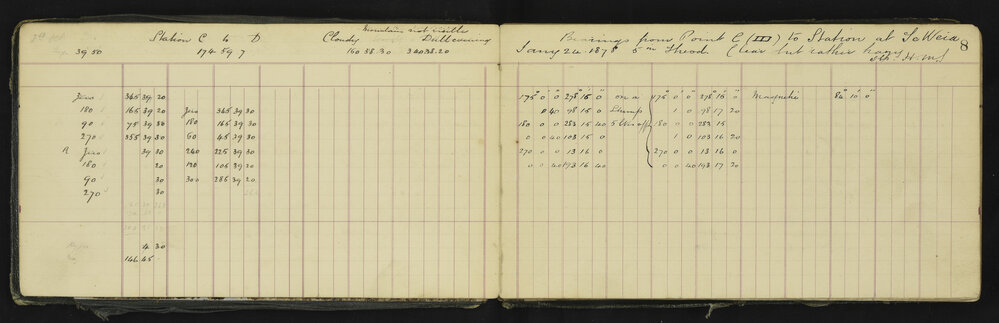 Mountain not visible
Station C to D Cloudy Dull evening
39 50 174 59 7 160 58.30 340 38.20
Zero 345 39 20
180 165 39 20 Zero 345 39 30
90 75 39 30 180 165 39 30
270 255 39 30 60 45 39 30
R Zero 39 30 240 225 39 30
180 20 120 105 39 20
90 30 300 285 39 20
270 30
4 30
146 45
Bearings from Point C (III) to Station at Te Weia 8
Jany 24. 1878 5 in Thead Clear but rather hazy
175° 0' 0" 278° 15' 0" on a 175° 0' 0" 278° 15' 0" Magnetic 84° 10' 0"
0 40 98 15 0 Stump 1 0 98 17 20
180 0 0 283 15 40 5 lks off 180 0 0 283 15
0 0 40 103 15 0 1 0 103 16 20
270 0 0 13 15 0 270 0 0 13 16 0
0 0 40 193 16 40 0 0 40 193 17 20